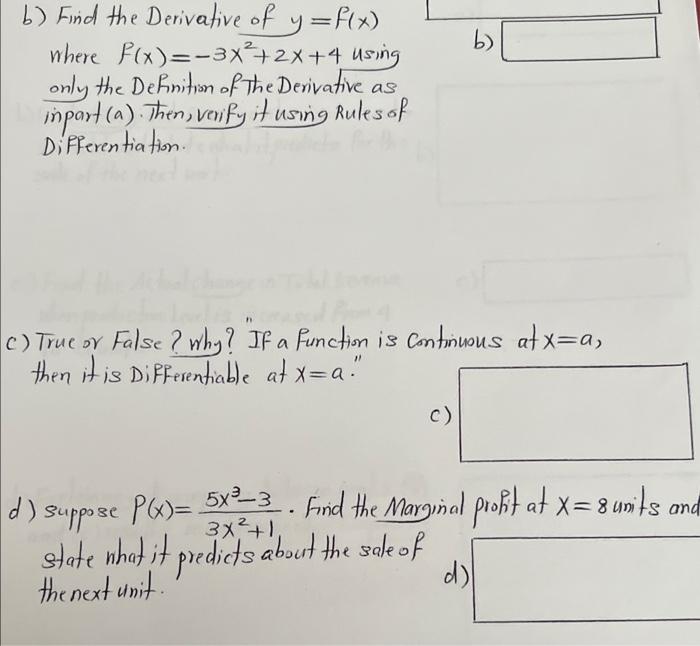 b) Find the Derivative of y=f(x)
where f(x)=-3x²+2x+4 using
only the Definition of The Derivative as
in part (a). Then, verify it using Rules of
Differentiation.
b)
c) True or False? Why? "If a function is Continuous at x=a,
then it is Differentiable at x=a."
c)
d) Suppose P(x)= 5x³-3 / 3x²+1 . Find the Marginal profit at x=8 units and
state what it predicts about the sale of
the next unit.
d)